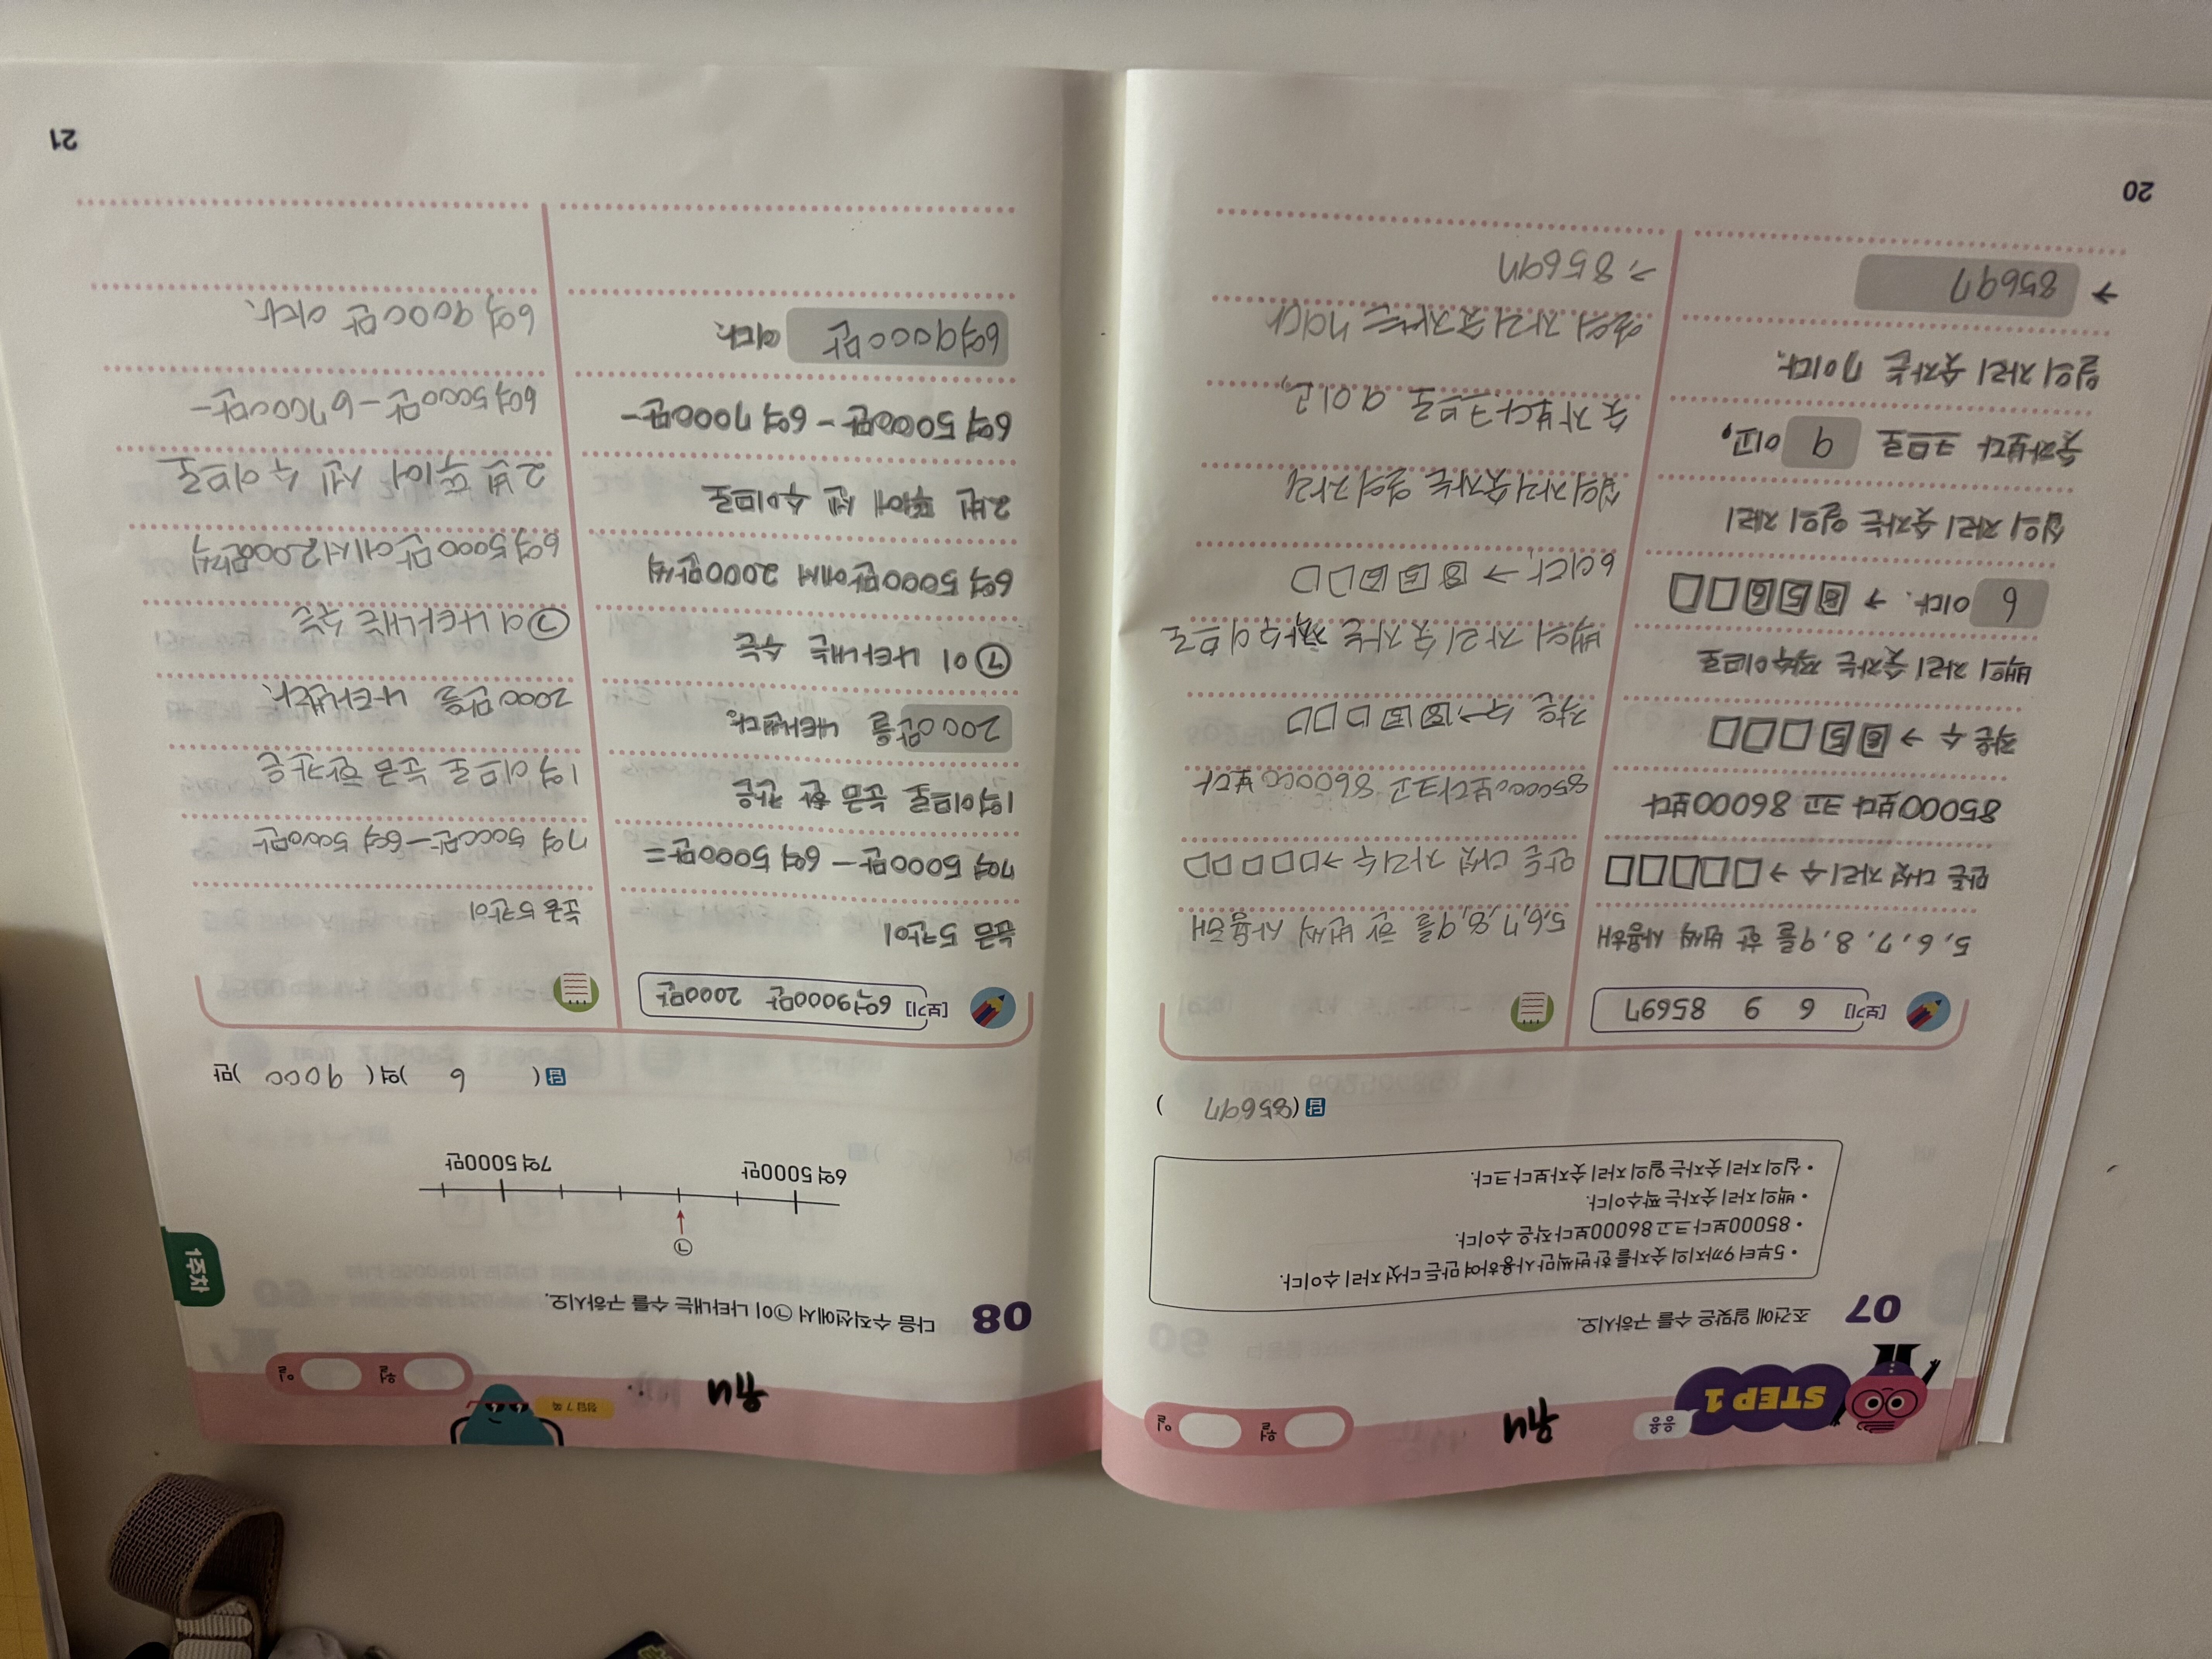 STEP 1 응용
유니
월 일
07 조건에 알맞은 수를 구하시오.
• 5부터 9까지의 숫자를 한 번씩만 사용하여 만든 다섯 자리 수이다.
• 85000보다 크고 86000보다 작은 수이다.
• 백의 자리 숫자는 짝수이다.
• 십의 자리 숫자는 일의 자리 숫자보다 크다.
답 (85697)
[보기] 6 9 85697
5, 6, 7, 8, 9를 한 번씩 사용해
만든 다섯 자리 수 → □□□□□
85000보다 크고 86000보다
작은 수 → 8 5 □□□
백의 자리 숫자는 짝수이므로
6 이다. → 8 5 6 □□
십의 자리 숫자는 일의 자리
숫자보다 크므로 9 이고,
일의 자리 숫자는 7이다.
→ 85697
5,6,7,8,9를 한 번씩 사용해
만든 다섯 자리 수 → □□□□□
85000보다 크고 86000보다
작은 수 → 8 5 □□□
백의 자리 숫자는 짝수이므로
6이다 → 8 5 6 □□
십의 자리 숫자는 일의 자리
숫자보다 크므로 9이고,
일의 자리 숫자는 7이다
→ 85697
20
정답 7쪽
유니
월 일
1주차
08 다음 수직선에서 ㉠이 나타내는 수를 구하시오.
㉠
6억 5000만 7억 5000만
답 ( 6 )억 ( 9000 )만
[보기] 6억 9000만 2000만
눈금 5칸이
7억 5000만 - 6억 5000만=
1억이므로 눈금 한 칸은
2000만 을 나타낸다.
㉠이 나타내는 수는
6억 5000만에서 2000만씩
2번 뛰어 센 수이므로
6억 5000만 - 6억 7000만 -
6억9000만 이다.
눈금 5칸이
7억 5000만 - 6억 5000만
1억이므로 눈금 한칸은
2000만을 나타낸다.
㉠이 나타내는 수는
6억5000만에서 2000만씩
2번 뛰어 센 수이므로
6억5000만 - 67000만 -
6억 9000만 이다.
21